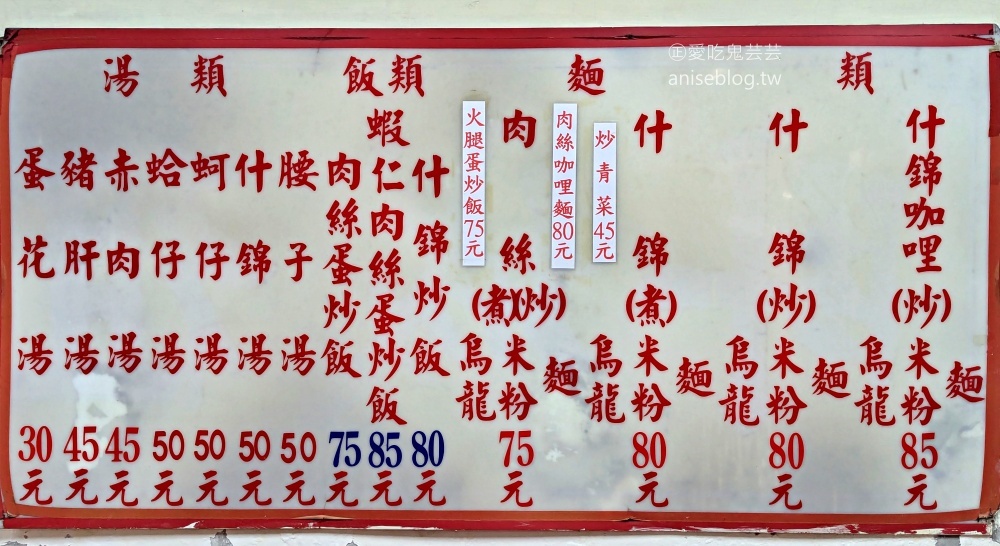 ㊣愛吃鬼芸芸
aniseblog.tw
麵類
什錦咖哩(炒)
麵
米粉
烏龍
85元
什錦(炒)
麵
米粉
烏龍
80元
什錦(煮)
麵
米粉
烏龍
80元
炒青菜45元
肉絲咖哩麵80元
肉絲(煮)(炒)
麵
米粉
烏龍
75元
火腿蛋炒飯75元
飯類
什錦炒飯80元
蝦仁肉絲蛋炒飯85元
肉絲蛋炒飯75元
湯類
腰子湯50元
什錦湯50元
蚵仔湯50元
蛤仔湯50元
赤肉湯45元
豬肝湯45元
蛋花湯30元